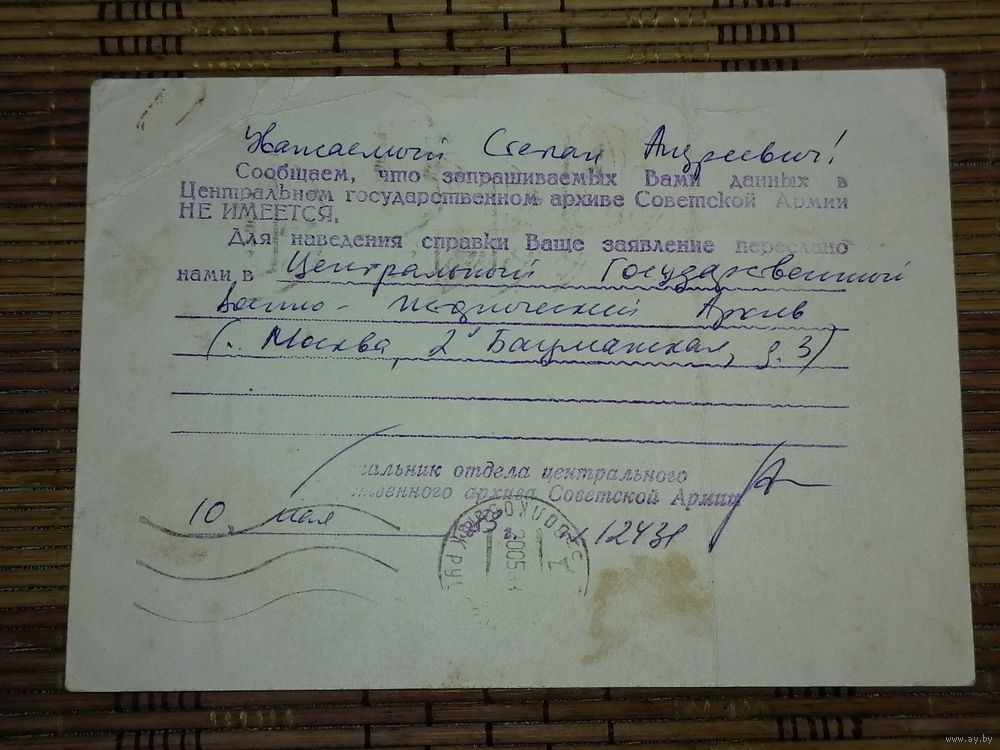 Уважаемый Степан Андреевич!
Сообщаем, что запрашиваемых Вами данных в
Центральном государственном архиве Советской Армии
НЕ ИМЕЕТСЯ.
Для наведения справки Ваше заявление переслано
нами в Центральный Государственный
Военно-исторический Архив
(г. Москва, 2 Бауманская, д. 3)
альник отдела центрального
твенного архива Советской Армии
10 мая
№ 12431
www.ay.by